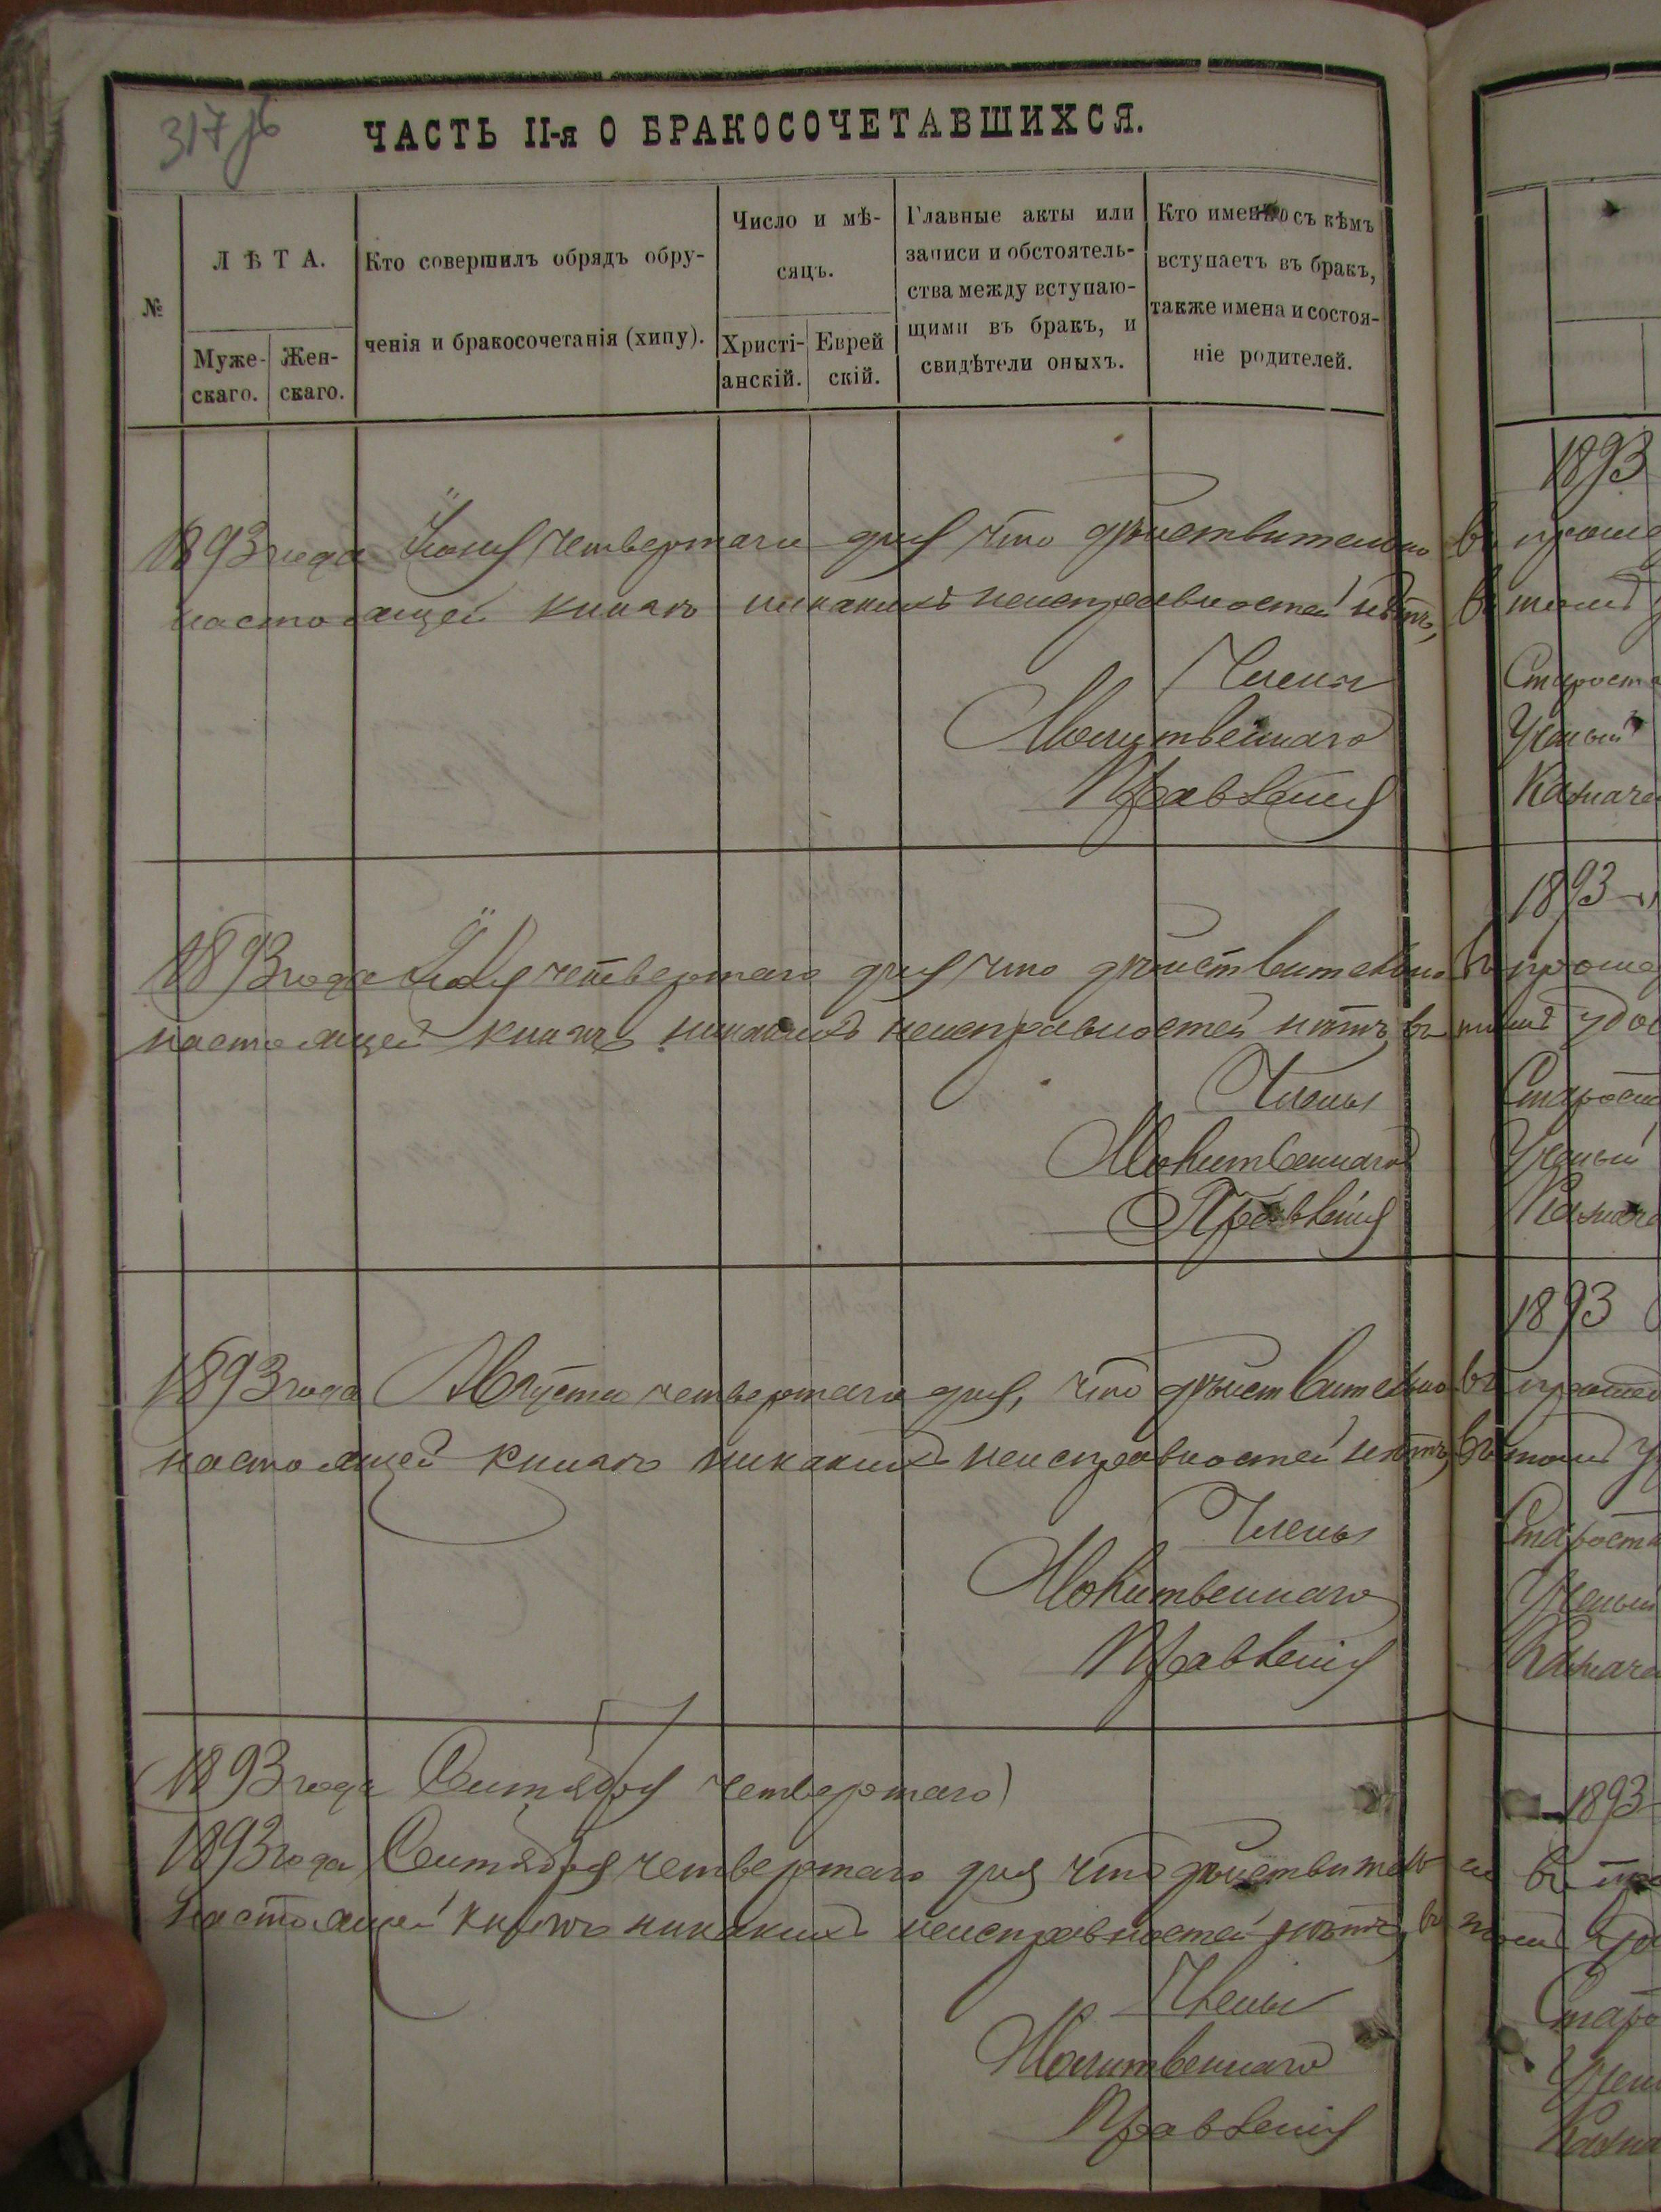 317 об
ЧАСТЬ II-я О БРАКОСОЧЕТАВШИХСЯ.
№
ЛѢТА.
Муже-
скаго.
Жен-
скаго.
Кто совершилъ обрядъ обру-
ченія и бракосочетанія (хипу).
Число и мѣ-
сяцъ.
Христі-
анскій.
Еврей
скій.
Главные акты или
записи и обстоятель-
ства между вступаю-
щими въ бракъ, и
свидѣтели оныхъ.
Кто именно съ кѣмъ
вступаетъ въ бракъ,
также имена и состоя-
ніе родителей.
1893
1893 года четвертаго дня что дѣйствительно въ проше
настоящей книгѣ никакихъ неисправностей нѣтъ, въ томъ
Члены Староста
Молитвеннаго Ученый
Правленія Казначе
1893
1893 года четвертаго дня что дѣйствительно въ проше
настоящей книгѣ никакихъ неисправностей нѣтъ, въ томъ удо
Члены Старост
Молитвеннаго Ученый
Правленія Казначе
1893
1893 года Августа четвертаго дня, что дѣйствительно въ прошед
настоящей книгѣ никакихъ неисправностей нѣтъ, въ томъ у
Члены Староста
Молитвеннаго Ученый
Правленія Казначе
(1893 года Сентября четвертаго)
1893
1893 года Сентября четвертаго дня что дѣйствительно въ про
настоящей книгѣ никакихъ неисправностей нѣтъ, въ томъ удо
Члены Старо
Молитвеннаго Учен
Правленія Казна